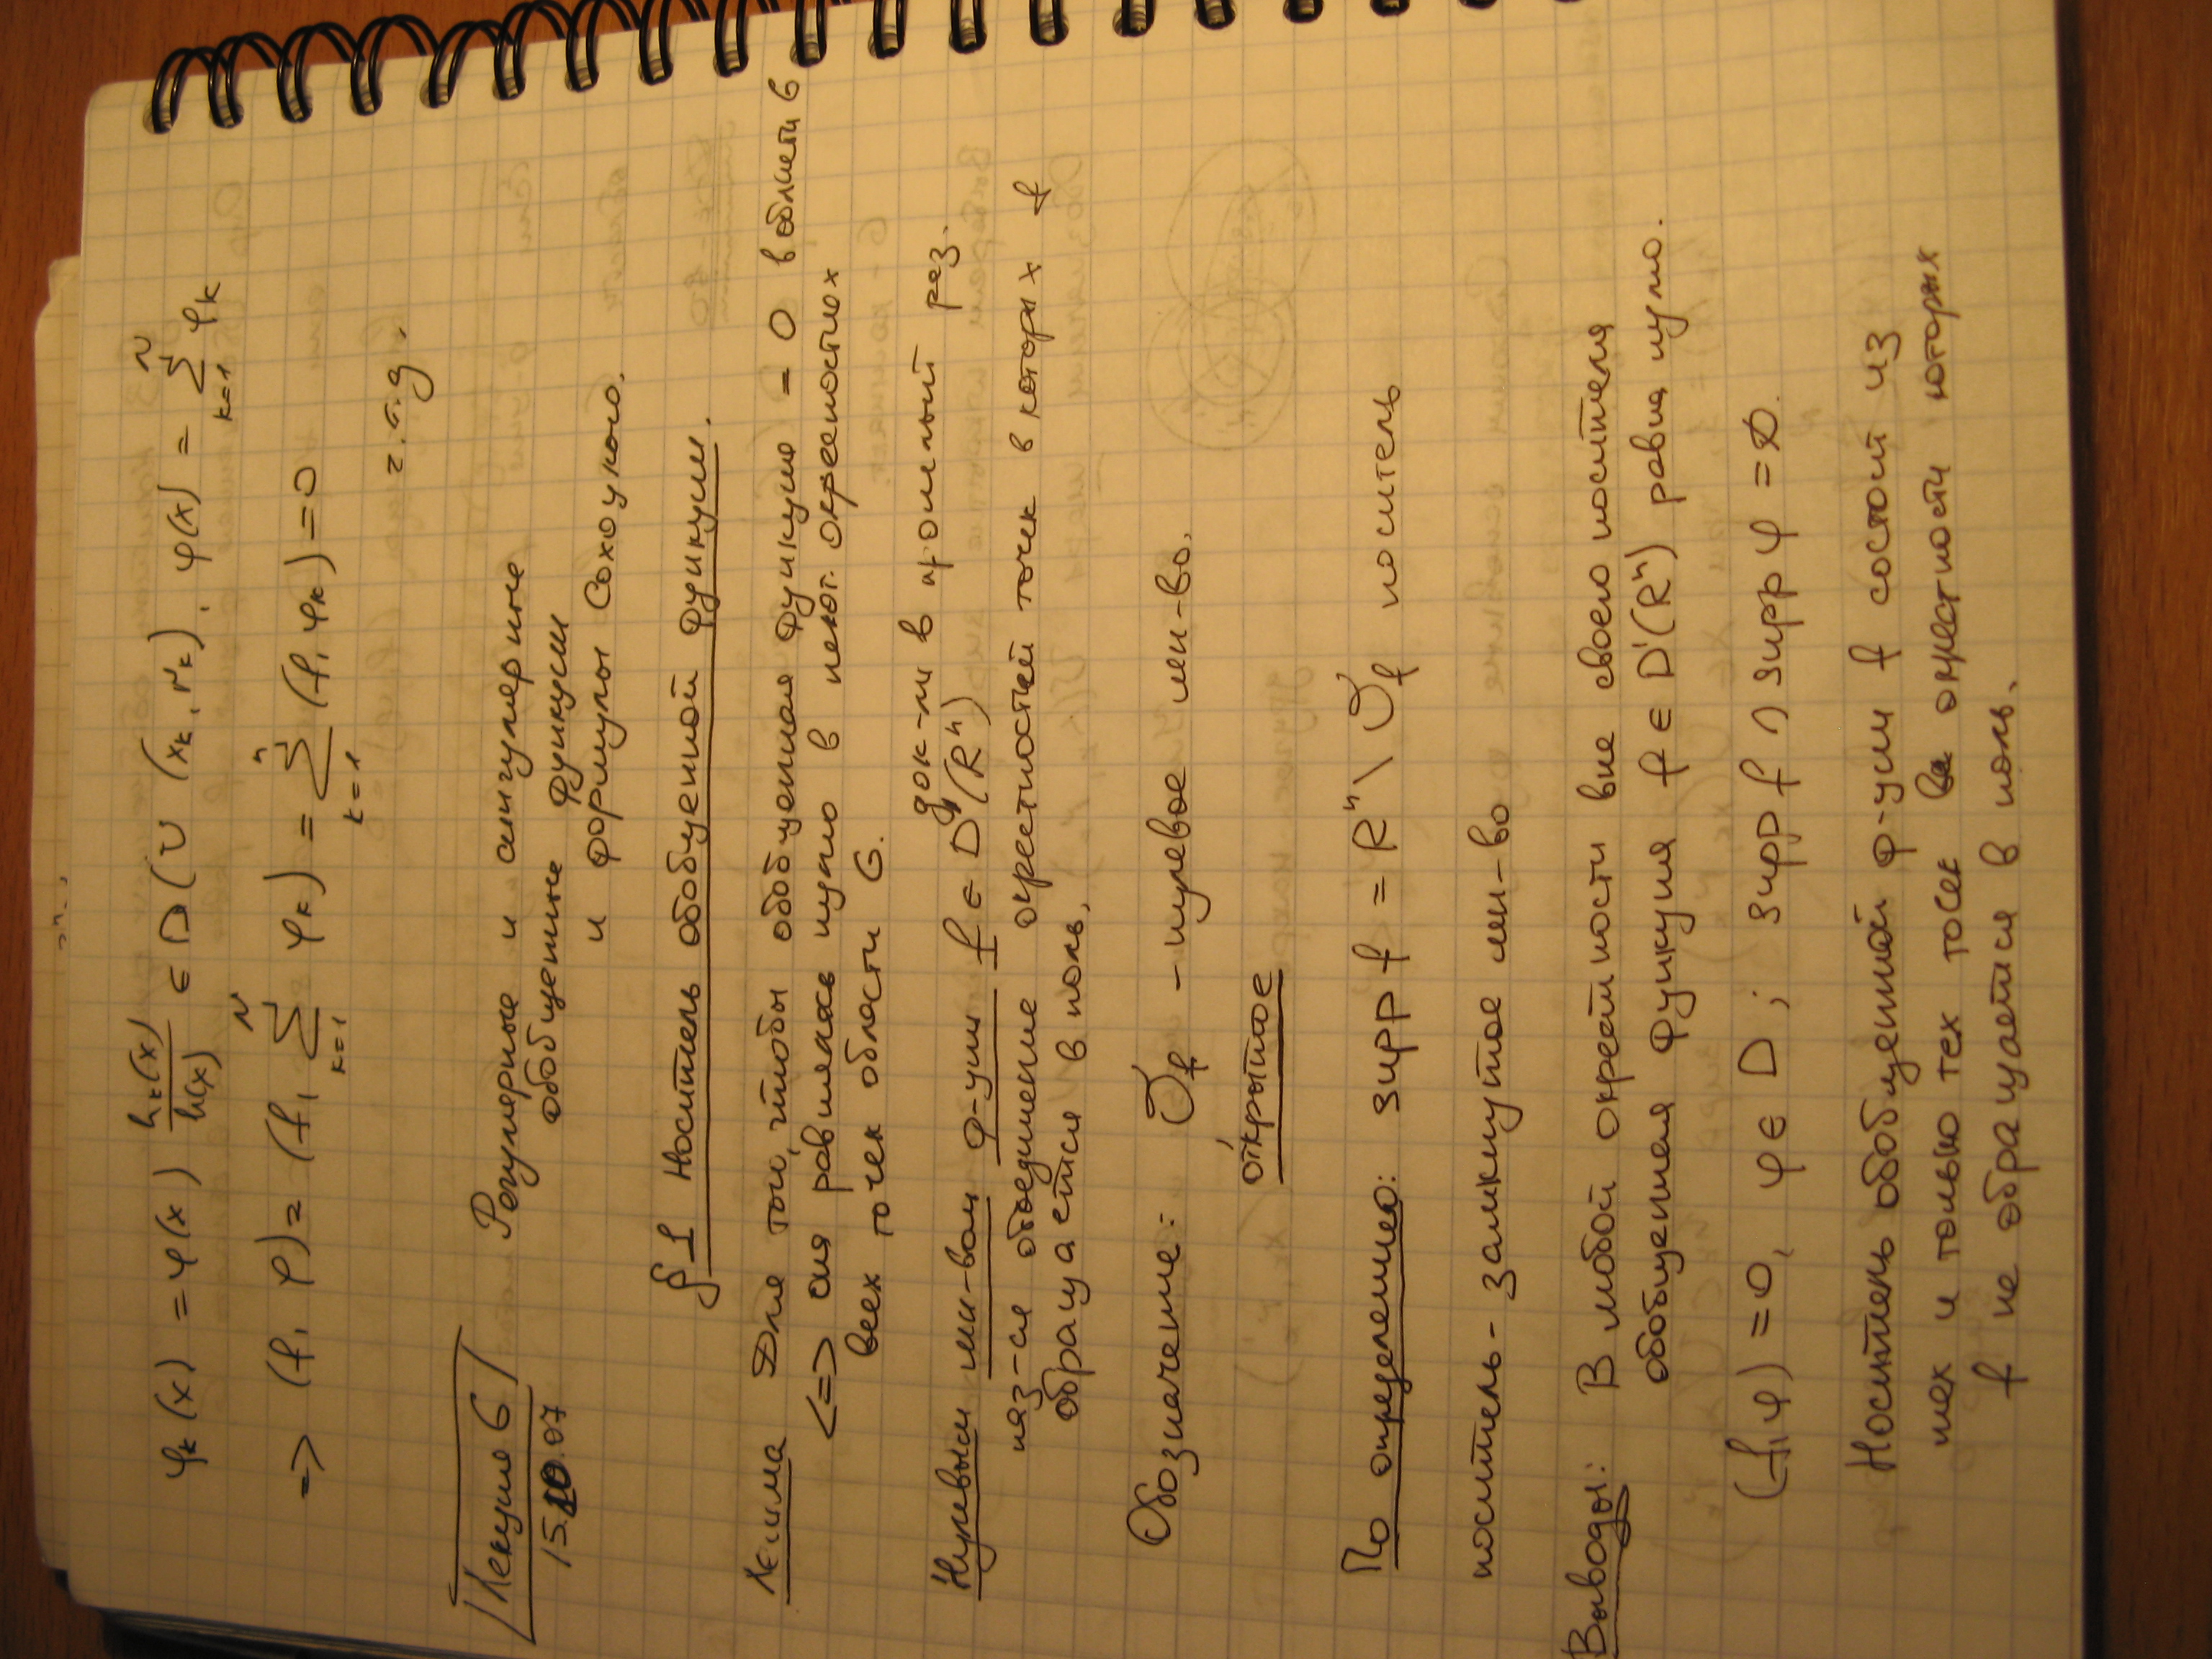 φₖ(x) = φ(x) hₖ(x)/h(x) ∈ D(U(xₖ, rₖ)), φ(x) = Σₖ₌₁ᴺ φₖ
=> (f, φ) = (f, Σₖ₌₁ᴺ φₖ) = Σₖ₌₁ⁿ (f, φₖ) = 0
ч.т.д.
Лекция 6
15.10.07
Регулярные и сингулярные
обобщенные функции
и формулы Сохоцкого.
§ 1 Носитель обобщенной функции.
Лемма Для того, чтобы обобщенная функция = 0 в области G
<=> она равнялась нулю в некот. окрестностях
всех точек области G.
док-ли в прошлый раз.
Нулевым мн-вом ф-ции f ∈ D'(Rⁿ)
наз-ся объединение окрестностей точек в которых f
обращается в ноль.
Обозначение: O_f - нулевое мн-во.
открытое
По определению: supp f = Rⁿ \ O_f носитель
носитель - замкнутое мн-во
Выводы: В любой окрестности вне своего носителя
обобщенная функция f ∈ D'(Rⁿ) равна нулю.
(f, φ) = 0, φ ∈ D; supp f ∩ supp φ = ∅.
Носитель обобщенной ф-ции f состоит из
тех и только тех точек в окрестности которых
f не обращается в ноль.